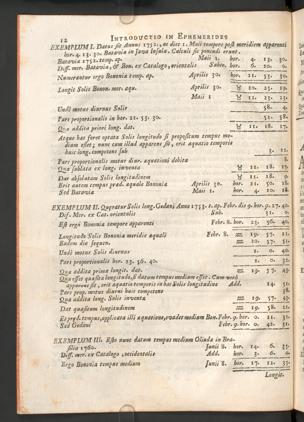 12 INTRODUCTIO IN EPHEMERIDES
EXEMPLUM I. Datur sit Annus 1752, ac dies 1. Maii tempore post meridiem apparenti
hor. 4. 13. 30. Bataviæ in Java Insula. Calculi sic ponendi erunt.
Bataviæ 1752. temp. ap. Maii 1. hor. 4. 13. 30.
Diff. mer. Bataviæ, & Bon. ex Catalogo, orientalis Subtr. hor. 6. 20. 0.
Numerantur ergo Bononiæ temp. ap. Aprilis 30. hor. 21. 53. 30.
Longit. Solis Bonon. mer. aqu. Aprilis 30. ♉ 10. 25. 19.
Maii 1 ♉ 11. 23. 23.
Unde motus diurnus Solis 58. 4.
Pars proportionalis in hor. 21. 53. 30. 52. 58.
Qua addita priori long. dat. ♉ 11. 18. 17.
Atque hæc foret optata Solis longitudo si propositum tempus medium
esset; nunc cum illud apparens sit, erit æquatio temporis
huic long. competens sub 3. 11.
Pars proportionalis motus diur. æquationi debita 8.
Qua sublata ex long. inventa ♉ 11. 18. 17.
Dat absolutam Solis longitudinem ♉ 11. 18. 9.
Erit autem tempus præd. æquale Bononiæ Aprilis 30. hor. 21. 50. 18.
Sed Bataviæ Maii 1. hor. 4. 10. 18.
EXEMPLUM II. Quæratur Solis long. Gedani Anno 1753. t. ap. Febr. die 9. hor. 0. 27. 40.
Dif. Mer. ex Cat. orientalis Sub. 31. 0.
Est ergo Bononiæ tempore apparenti Febr. 8. hor. 23. 56. 40.
Longitudo Solis Bononiæ meridie æquali Febr. 8. ♒ 19. 37. 11.
Eadem die sequen. ♒ 20. 37. 51.
Unde motus Solis diurnus 1. 0. 40.
Pars proportionalis hor. 23. 56. 40. 1. 0. 32.
Qua addita primæ longit. dat. ♒ 19. 57. 43.
Quæ esset quæsita longitudo, si datum tempus medium esset. Cum vero
apparens sit, erit æquatio temporis in hac Solis longitudine Add. 14. 51.
Pars prop. motus diurni huic competens 38.
Qua addita long. Solis inventa ♒ 19. 57. 43.
Dat quæsitam longitudinem ♒ 19. 58. 21.
Et præd. tempus, applicata illi æquatione, evadet medium Bon. Febr. 9. hor. 0. 11. 31.
Sed Gedani Febr. 9. hor. 0. 42. 31.
EXEMPLUM III. Esto nunc datum tempus medium Olindæ in Brasilia
1760. Junii 8. hor. 14. 6. 35.
Diff. mer. ex Catalogo, occidentalis Add. hor. 3. 6. 0.
Ergo Bononiæ tempus medium Junii 8. hor. 17. 12. 35.
Longit.